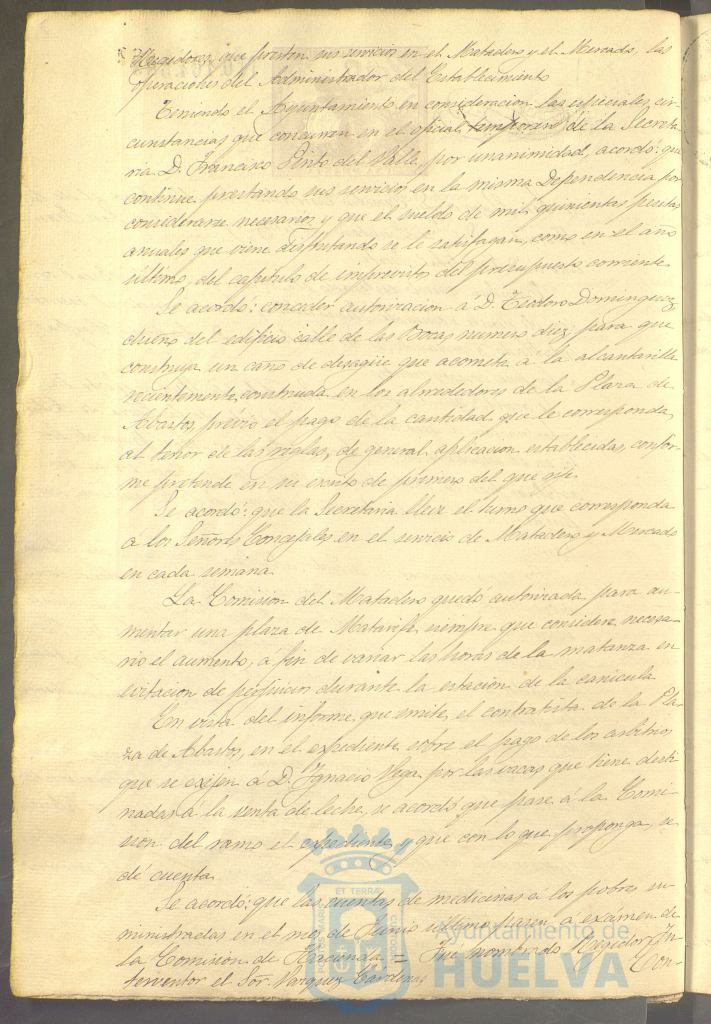 Regidores, que presten sus servicios en el Matadero y el Mercado, las
operaciones del Administrador del Establecimiento
Teniendo el Ayuntamiento en consideracion las especiales cir-
cunstancias que concurren en el oficial temporero de la Secreta-
ria D. Francisco Pinto del Valle, por unanimidad, acordó: que
continue prestando sus servicios en la misma Dependencia por
considerarse necesarios y que el sueldo de mil quinientas pesetas
anuales que viene disfrutando se le satisfagan, como en el año
último, del capítulo de imprevistos del presupuesto corriente
Se acordó: conceder autorizacion á D. Teodoro Dominguez,
dueño del edificio calle de las Bocas numero diez, para que
construya un caño de desagüe que acometa á la alcantarilla
recientemente construida en los alrededores de la Plaza de
Abastos, previo el pago de la cantidad que le corresponda,
al tenor de las reglas, de general aplicacion establecidas, confor-
me pretende en su escrito de primero del que rije
Se acordó: que la Secretaria lleve el turno que corresponda
a los Señores Concejales en el servicio de Matadero y Mercado
en cada semana
La Comision del Matadero quedó autorizada para au-
mentar una plaza de Matarife, siempre que considere necesa-
rio el aumento, á fin de variar las horas de la matanza en
evitacion de perjuicios durante la estacion de la canicula
En vista del informe que emite el contratista de la Pla-
za de Abastos, en el expediente sobre el pago de los arbitrios
que se exijen á D. Ignacio Vega por las vacas que tiene desti
nadas á la venta de leche, se acordó que pase á la Comi-
sion del ramo el expediente y que con lo que proponga, se
dé cuenta.
Se acordó: que las cuentas de medicinas á los pobres su-
ministradas en el mes de Junio último pasen á exámen de
la Comision de Hacienda = Fué nombrado Regidor In-
terventor el Sor. Vazquez Cardenas
Con-
Ayuntamiento de
HUELVA